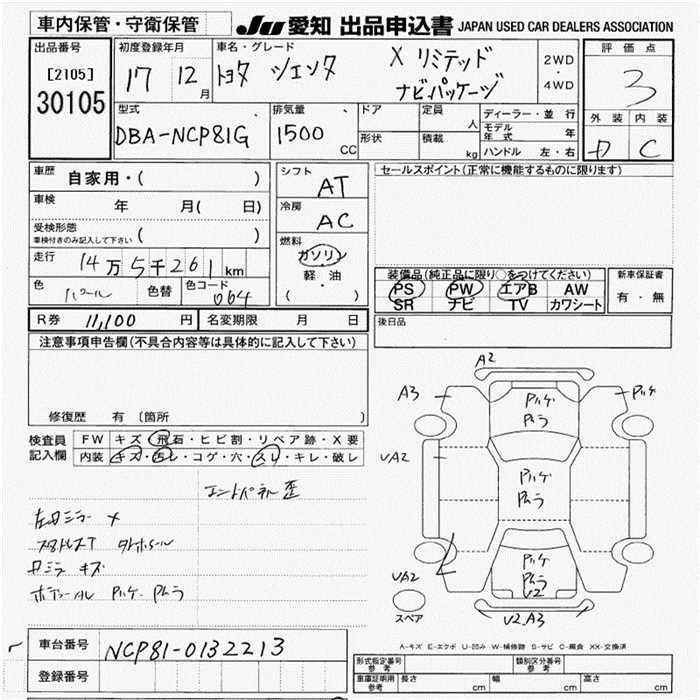 車内保管・守衛保管
JU 愛知 出品申込書 JAPAN USED CAR DEALERS ASSOCIATION
出品番号
[2105]
30105
初度登録年月
17 12月
車名・グレード
トヨタ シエンタ X リミテッド
ナビパッケージ
2WD
・
4WD
評価点
3
外装 内装
D C
型式
DBA-NCP81G
排気量
1500 CC
ドア
形状
定員 人
積載 kg
ディーラー・並行
モデル年式 年
ハンドル 左・右
車歴 自家用・( )
車検 年 月( 日)
受検形態
車検付きのみ記入して下さい ( )
走行 14万5千261km
色 パール 色替 色コード 064
シフト AT
冷房 AC
燃料
ガソリン
軽・油
( )
セールスポイント(正常に機能するものに限ります)
装備品(純正品に限り○をつけてください)
PS PW エアB AW
SR ナビ TV カワシート
新車保証書
有・無
R券 11,100 円 名変期限 月 日
後日品
注意事項申告欄(不具合内容等は具体的に記入して下さい)
修復歴 有(箇所 )
検査員
記入欄
FW キズ・飛石・ヒビ割・リペア跡・X要
内装 キズ・汚レ・コゲ・穴・スレ・キレ・破レ
エンドパネル歪
左ドミラー X
スタッドレスT
キズ
A2
A3
UA2
UA2
V2.A3
V2
スペア
A-キズ E-エクボ U-凹み W-補修跡 S-サビ C-腐食 XX-交換済
車台番号 NCP81-0132213
登録番号
形式指定番号
参考
類別区分番号
参考
車庫証明用
参考
長さ 幅 高さ